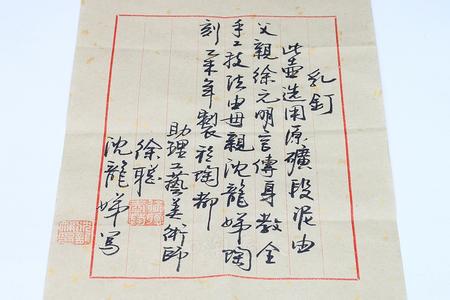 乳釘
此壺选用原礦段泥由
父親徐元明言傳身教全
手工技法由母親沈龍娣陶
刻乙未年製於陶都
助理工藝美術師
徐聪
沈龍娣寫